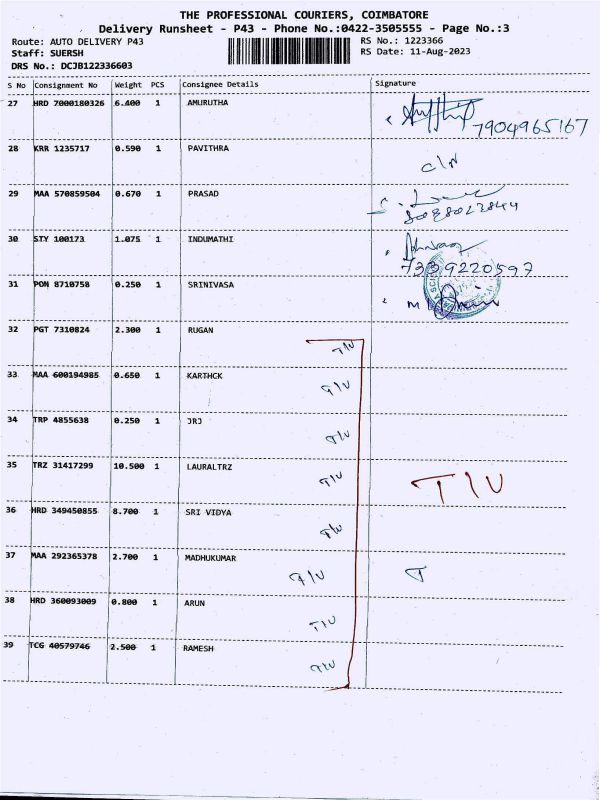 THE PROFESSIONAL COURIERS, COIMBATORE
Delivery Runsheet - P43 - Phone No.:0422-3505555 - Page No.:3
Route: AUTO DELIVERY P43 RS No.: 1223366
Staff: SUERSH RS Date: 11-Aug-2023
DRS No.: DCJB122336603
S No Consignment No Weight PCS Consignee Details Signature
27 HRD 7000180326 6.400 1 AMURUTHA
7904965167
28 KRR 1235717 0.590 1 PAVITHRA
29 MAA 570859504 0.670 1 PRASAD
30 STY 100173 1.075 1 INDUMATHI
7339220597
31 PON 8710758 0.250 1 SRINIVASA
32 PGT 7310824 2.300 1 RUGAN
T/U
33 MAA 600194985 0.650 1 KARTHCK
T/U
34 TRP 4855638 0.250 1 JRJ
T/U
35 TRZ 31417299 10.500 1 LAURALTRZ
T/U T/U
36 HRD 349450855 8.700 1 SRI VIDYA
T/U
37 MAA 292365378 2.700 1 MADHUKUMAR
T/U T
38 HRD 360093009 0.800 1 ARUN
T/U
39 TCG 40579746 2.500 1 RAMESH
T/U